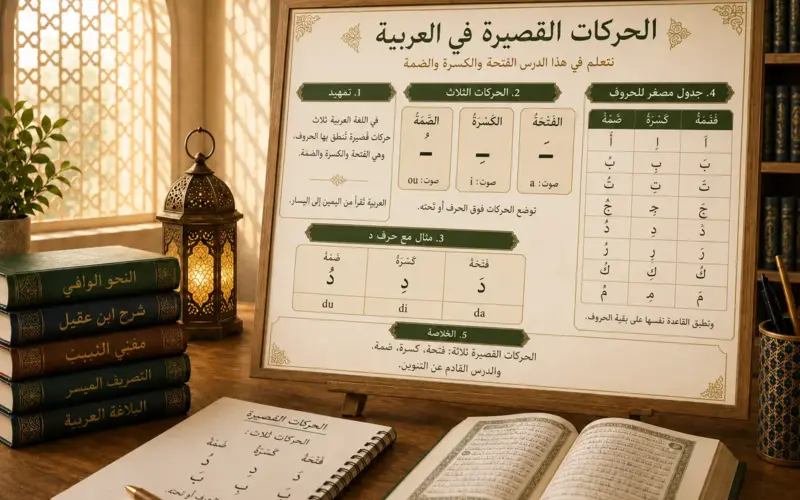 الحركات القصيرة في العربية
نتعلم في هذا الدرس الفتحة والكسرة والضمة
1. تمهيد
في اللغة العربية ثلاث
حركات قصيرة تُنطق بها الحروف،
وهي الفتحة والكسرة والضمة.
العربية تُقرأ من اليمين إلى اليسار.
2. الحركات الثلاث
الفَتْحَةُ الكَسْرَةُ الضَّمَّةُ
صوت: a صوت: i صوت: ou
توضع الحركات فوق الحرف أو تحته.
3. مثال مع حرف د
فَتْحَة كَسْرَة ضَمَّة
دَ دِ دُ
da di du
4. جدول مصغر للحروف
كَسْرَة ضَمَّة
أَ إِ أُ
بَ بِ بُ
تَ تِ تُ
جَ جِ جُ
دَ دِ دُ
رَ رِ رُ
كَ كِ كُ
مَ مِ مُ
وتطبق القاعدة نفسها على بقية الحروف.
5. الخلاصة
الحركات القصيرة ثلاثة: فتحة، كسرة، ضمة.
والدرس القادم عن التنوين.
النحو الوافي
شرح ابن عقيل
التصريف الميسر
البلاغة العربية
الحركات القصيرة
الحركات ثلاث:
فَتْحَة كَسْرَة ضَمَّة
دَ دِ دُ
بَ بِ بَ
أو تحته.